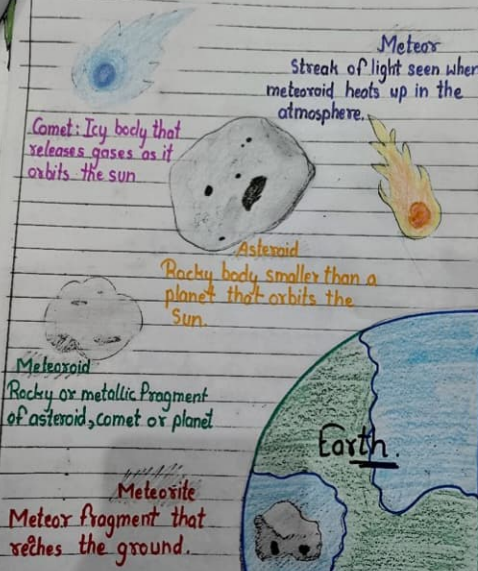 Meteor
Streak of light seen when
meteoroid heats up in the
atmosphere.
Comet: Icy body that
releases gases as it
orbits the sun
Asteroid
Rocky body smaller than a
planet that orbits the
Sun.
Meteoroid
Rocky or metallic fragment
of asteroid, comet or planet
Earth.
Meteorite
Meteor fragment that
reches the ground.